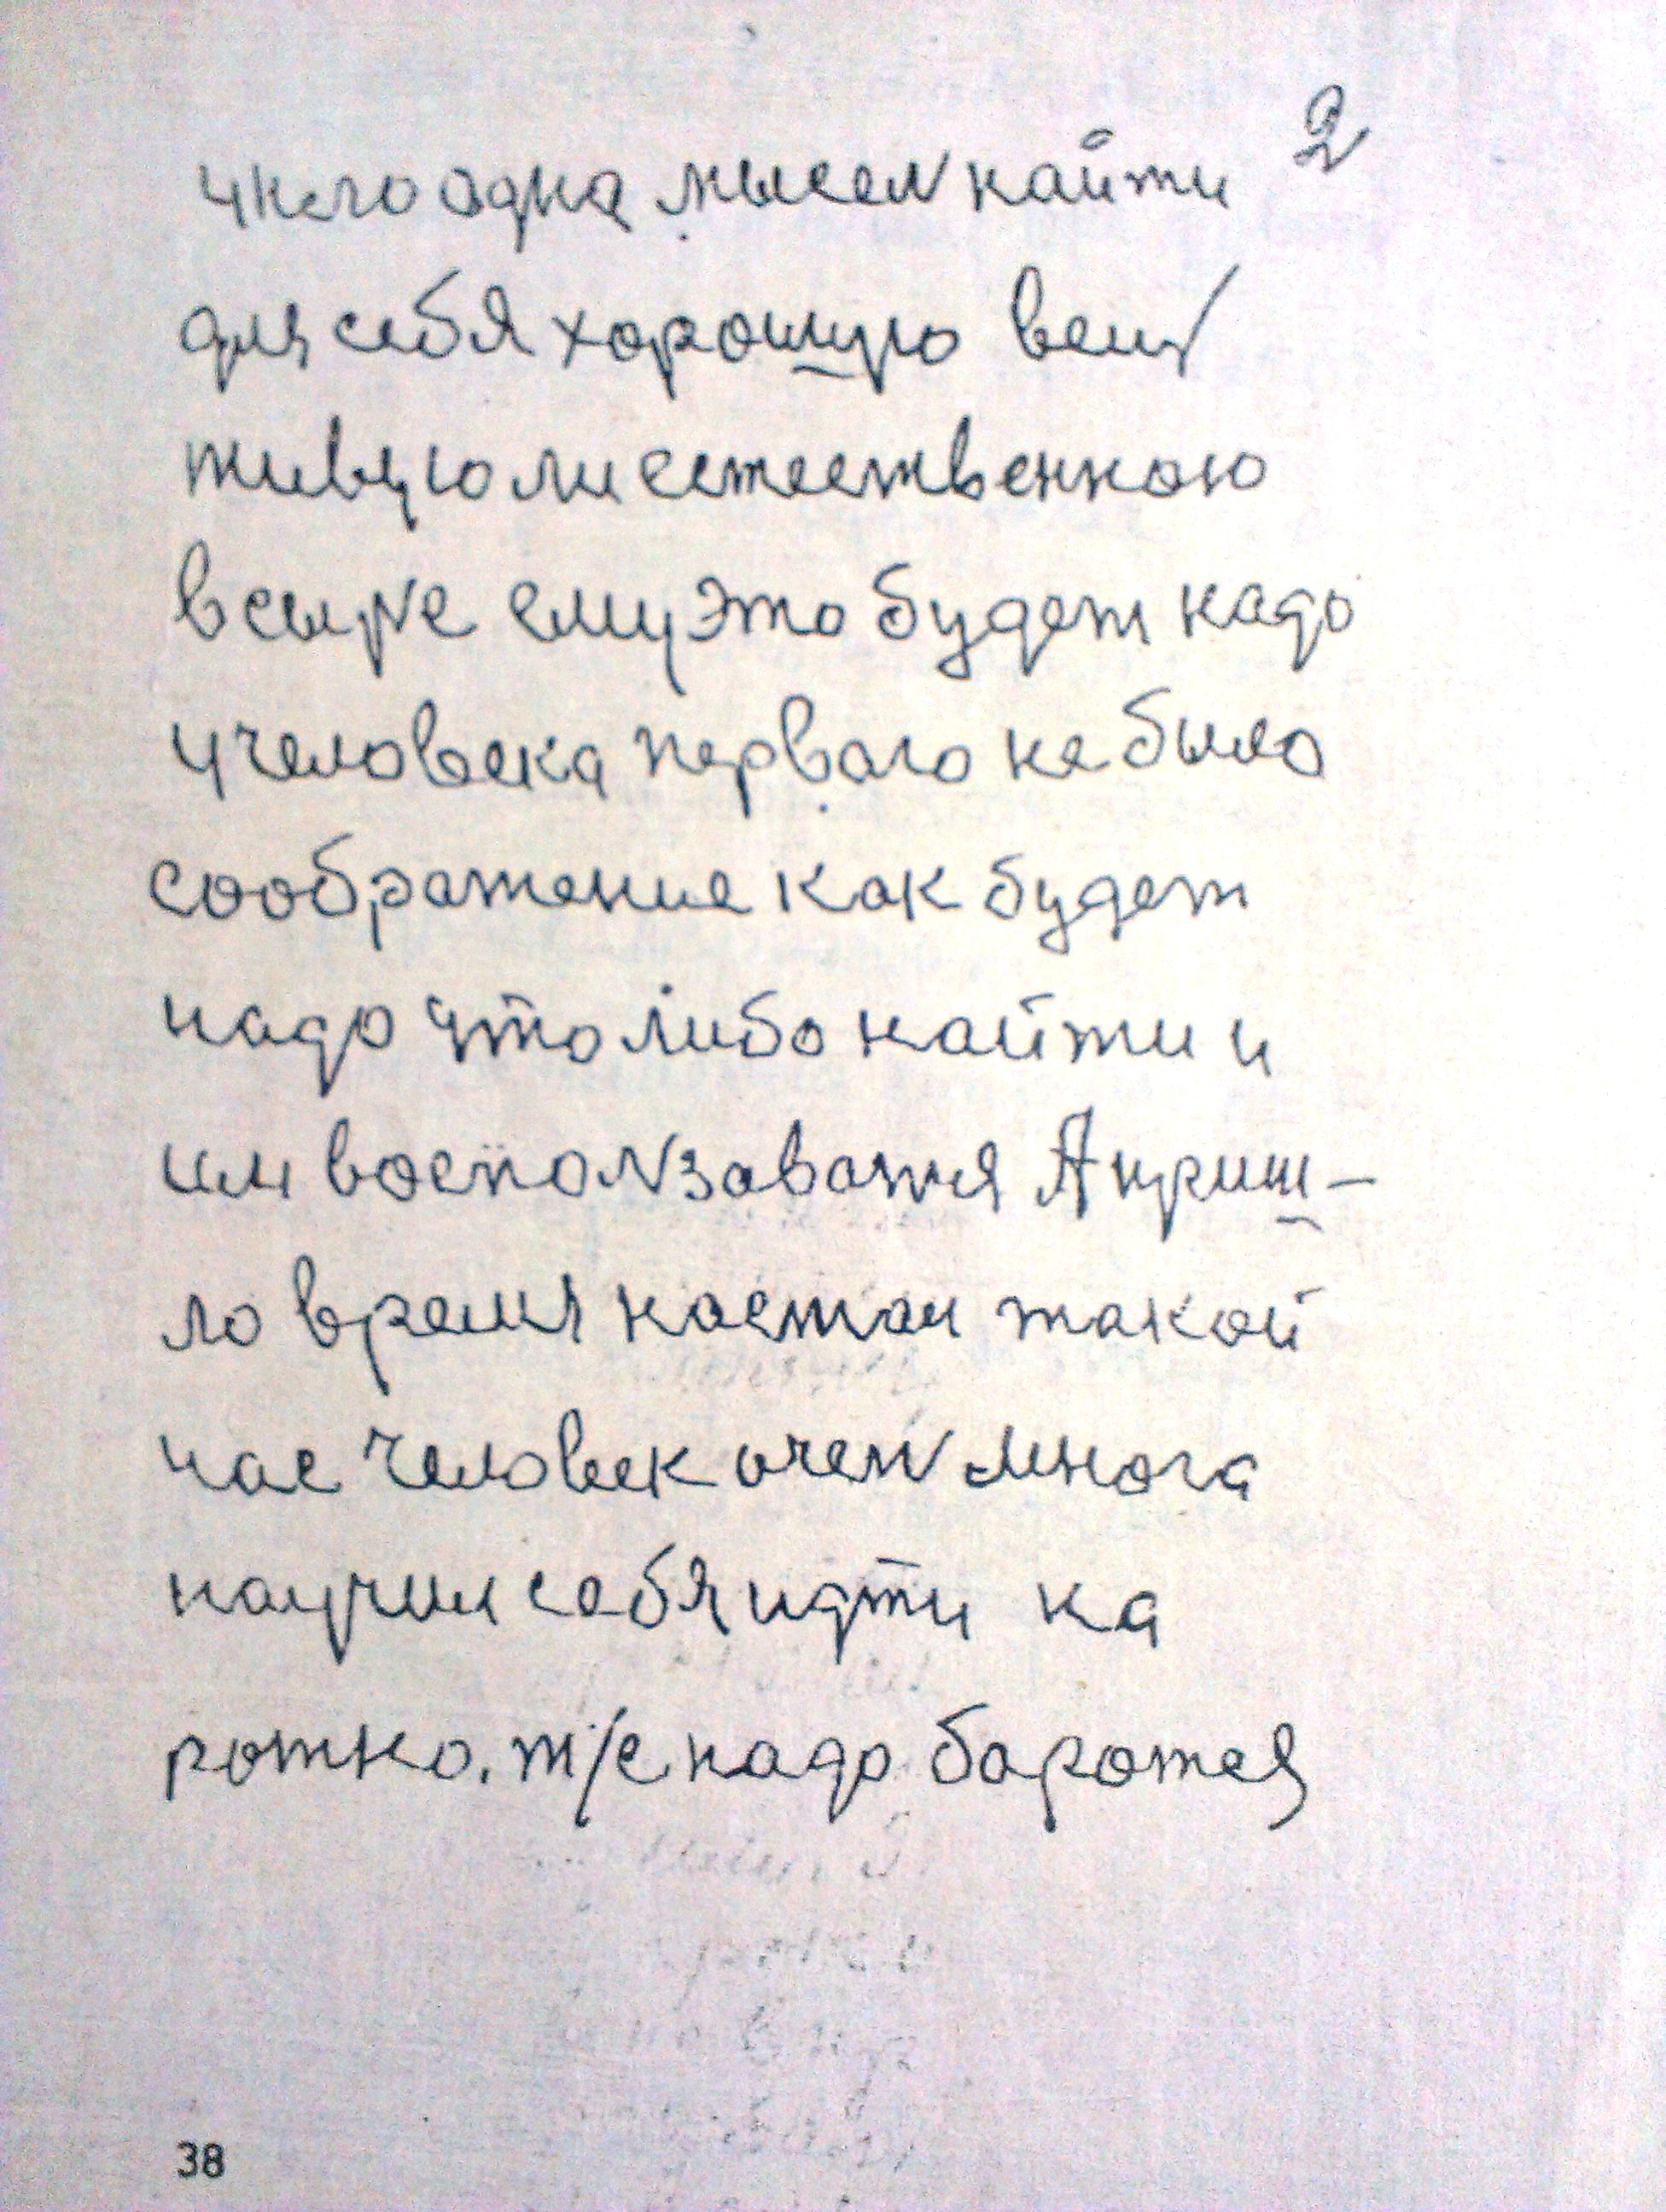 2
у него одна мысель найти
для себя хорошую вещь
живую ли естественною
в сырье ему это будет надо
У человека первого не было
сооброжение как будет
надо что либо найти и
им воспользаватся А приш-
ло время настал такой
час человек очень многа
научил себя идти ка
ротко. т/е надо баротся
38